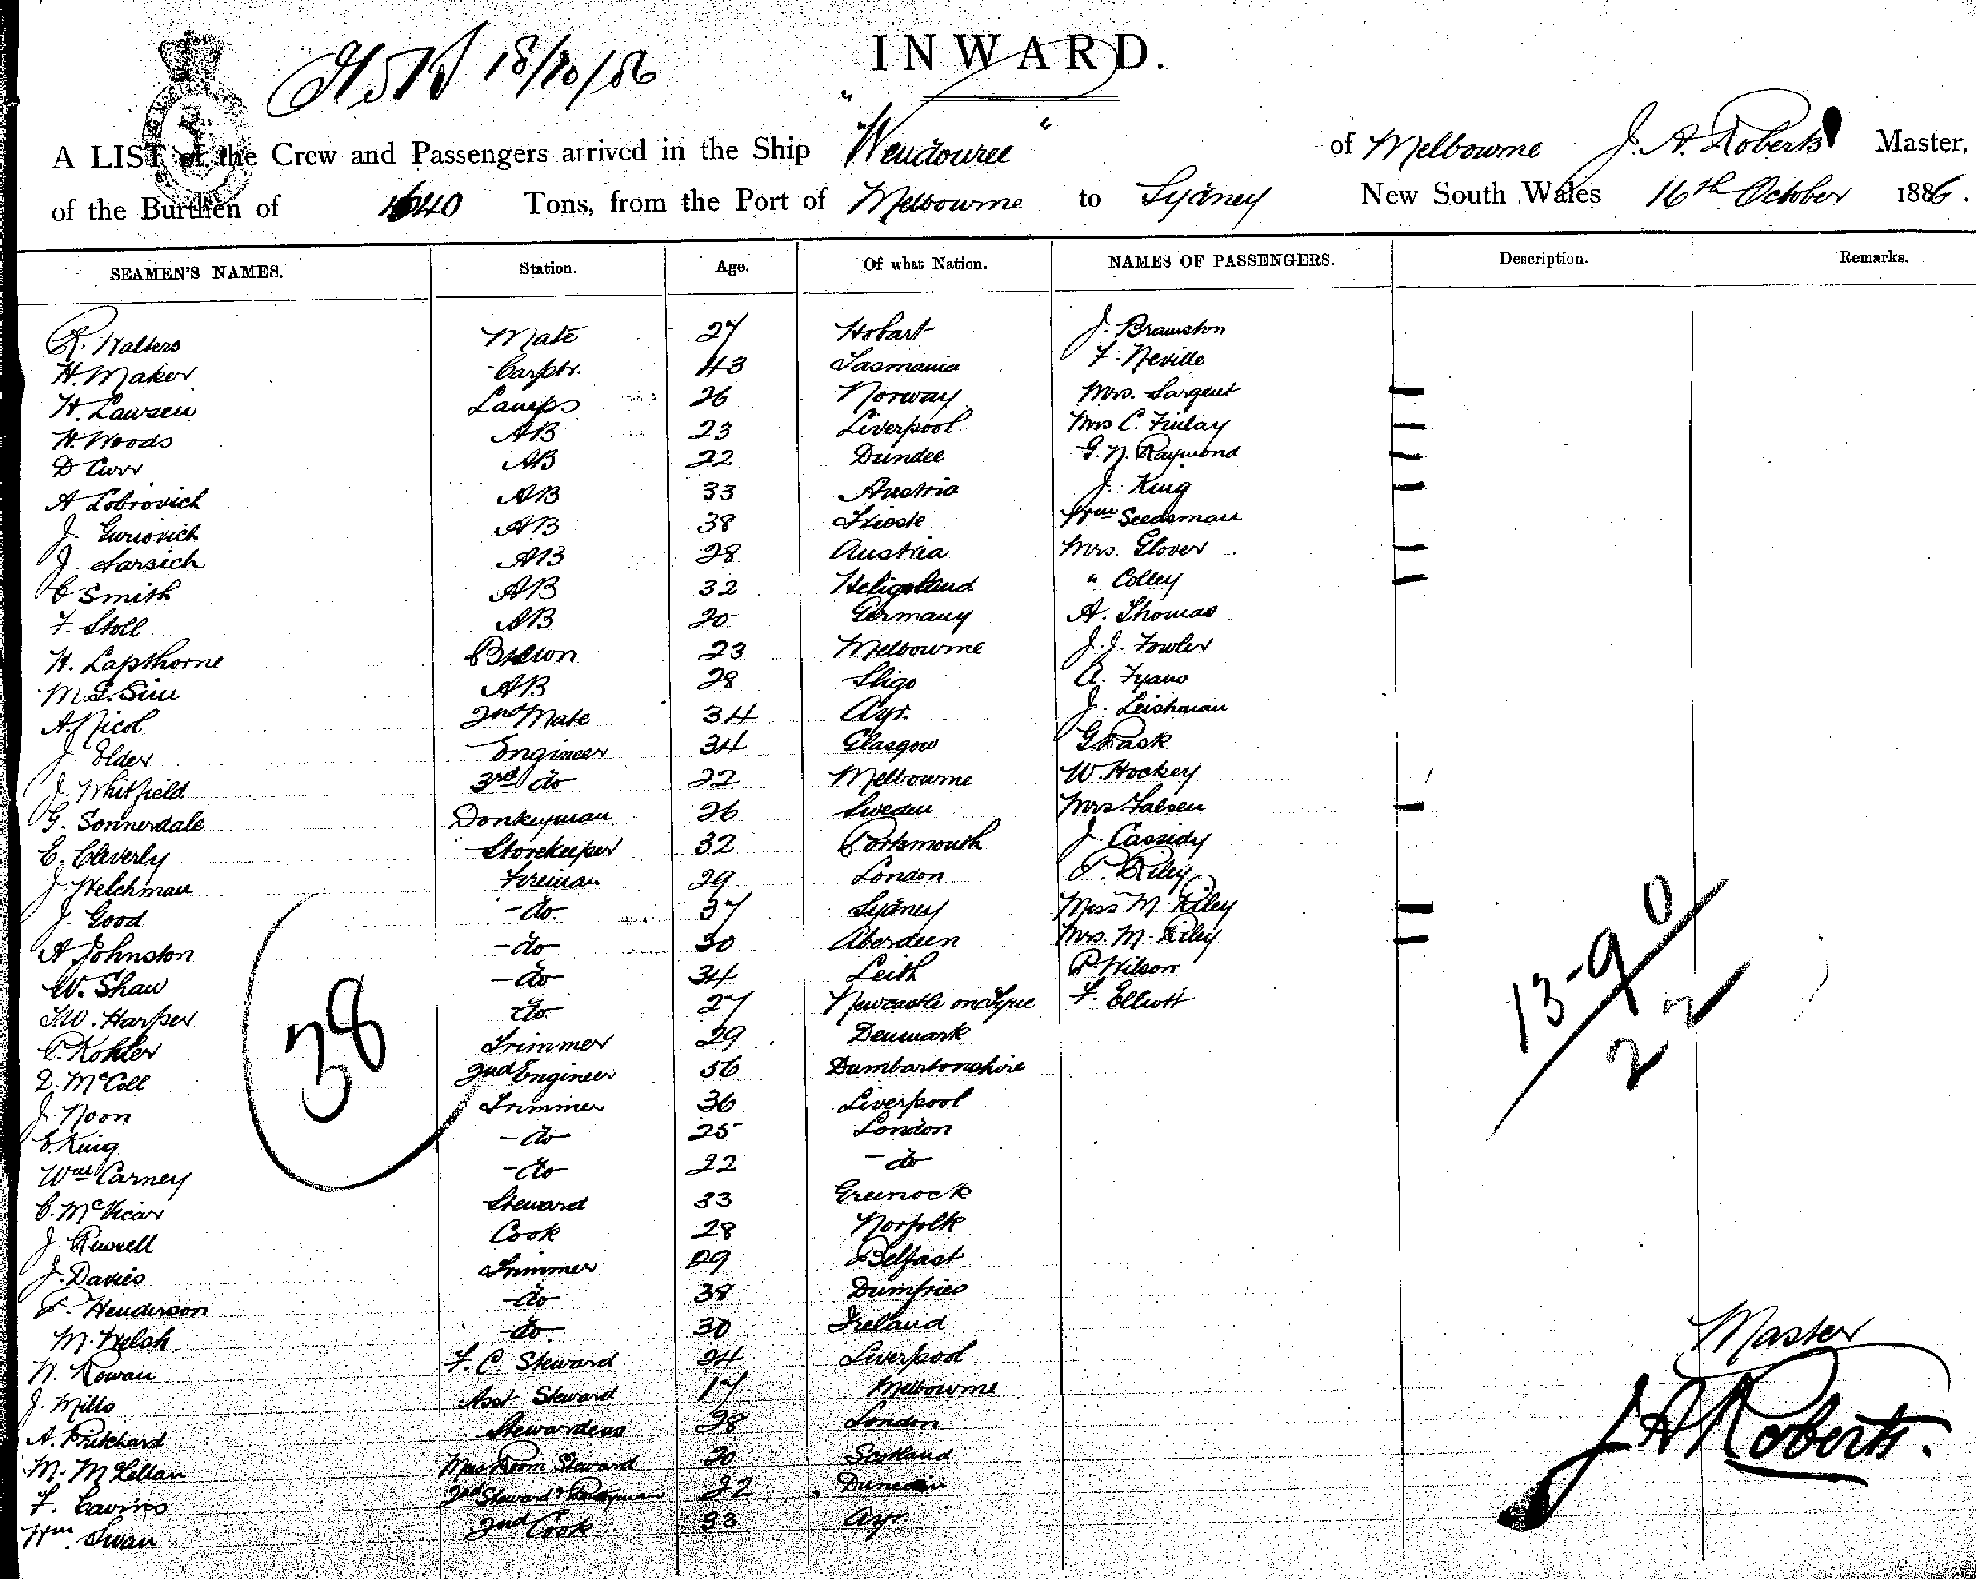 18/10/86
INWARD.
A LIST of the Crew and Passengers arrived in the Ship "Wendouree" of Melbourne J. A. Roberts Master,
of the Burthen of 1640 Tons, from the Port of Melbourne to Sydney New South Wales 16th October 1886.
SEAMEN'S NAMES. Station. Age. Of what Nation. NAMES OF PASSENGERS. Description. Remarks.
R. Walters Mate 27 Hobart J. Bramston
H. Maker Carptr. 43 Tasmania F. Neville
H. Lawsen Lamps 26 Norway Mrs. Sargent —
H. Woods AB 23 Liverpool Mrs C. Finlay —
D Curr AB 22 Dundee G. N. Raymond —
A Lobrovich AB 33 Austria J. King —
J. Guriovich AB 38 Trieste Wm Seedsman
J. Sarsich AB 28 Austria Mrs. Glover —
C Smith AB 32 Heligoland " Colley —
F. Stoll AB 20 Germany A. Thomas
H. Lapthorne 23 Melbourne J. J. Fowler
AB 28 Sligo A. Tyano
A. Nicol 2nd Mate 34 Ayr. J. Leishman
J. Elder Engineer 34 Glasgow G Pask
J. Whitfield 3rd do 22 Melbourne W Hockey
G. Sonnerdale Donkeyman 26 Sweden Mrs —
C. Claverly Storekeeper 32 Portsmouth J. Cassidy
J. Welchman Fireman 29 London P. Riley
J. Good - do 37 Sydney Miss M Riley —
A Johnston - do 30 Aberdeen Mrs. M. Riley —
W. Shaw - do 34 Leith P Wilson
T.W. Harper do 27 Newcastle on Tyne F. Elliott
C. Kohler Trimmer 29 Denmark
D. McColl 2nd Engineer 56 Dumbartonshire
J. Noon Trimmer 36 Liverpool
C. King - do 25 London
Wm Carney - do 22 - do
C. McVicar Steward 33 Greenock
J. Russell Cook 28 Norfolk
J. Davies Trimmer 29 Belfast
P. Henderson - do 38 Dumfries
M. Welsh - do 30 Ireland
N. Rowan F. C. Steward 24 Liverpool
J. Mills Asst Steward 17 Melbourne
A. Pritchard Stewardess 38 London
M. McLellan Mess Room Steward 20 Scotland
F. 2nd Steward 22
Wm. Swan 2nd Cook 23 Ayr.
38
13-9 0
22
Master
J A Roberts.